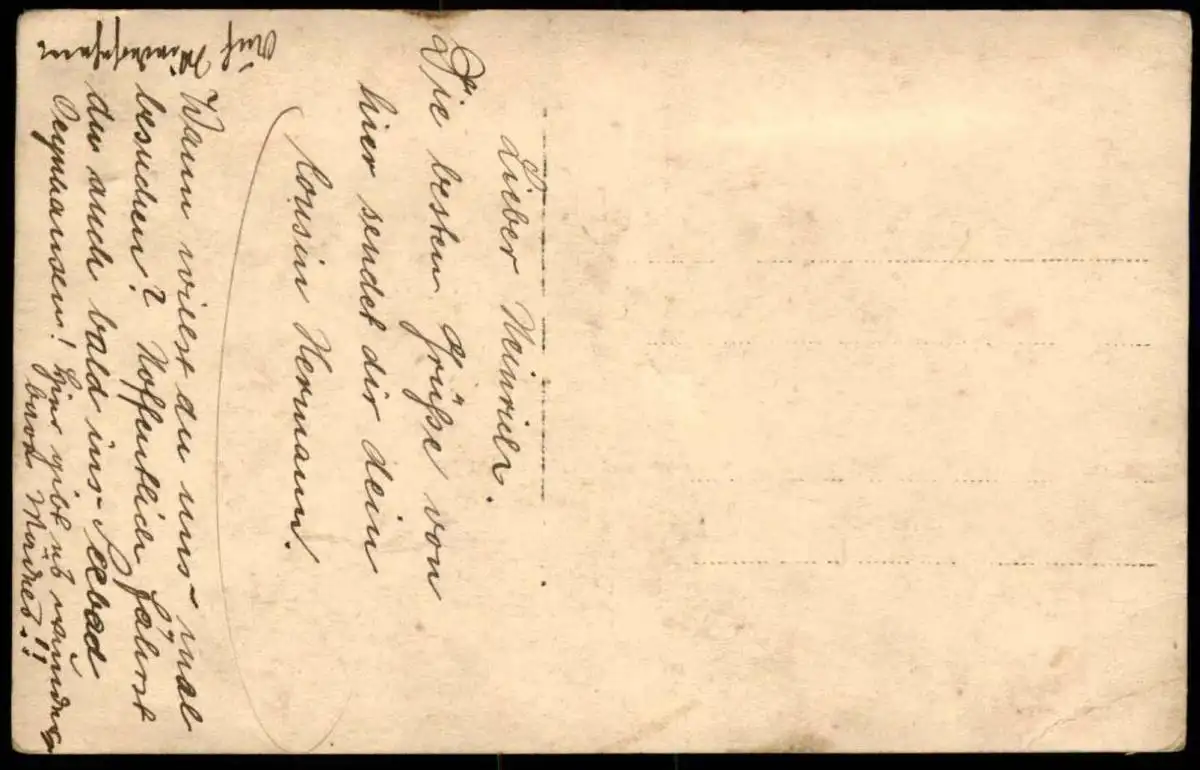 Lieber Heinrich.
Die besten Grüße von
hier sendet dir dein
Cousin Hermann.
Wann willst du uns mal
besuchen? Hoffentlich fährst
du auch bald ins Seebad
Oeynhausen! Hier gibt es
Mädels!!
Auf Wiedersehen